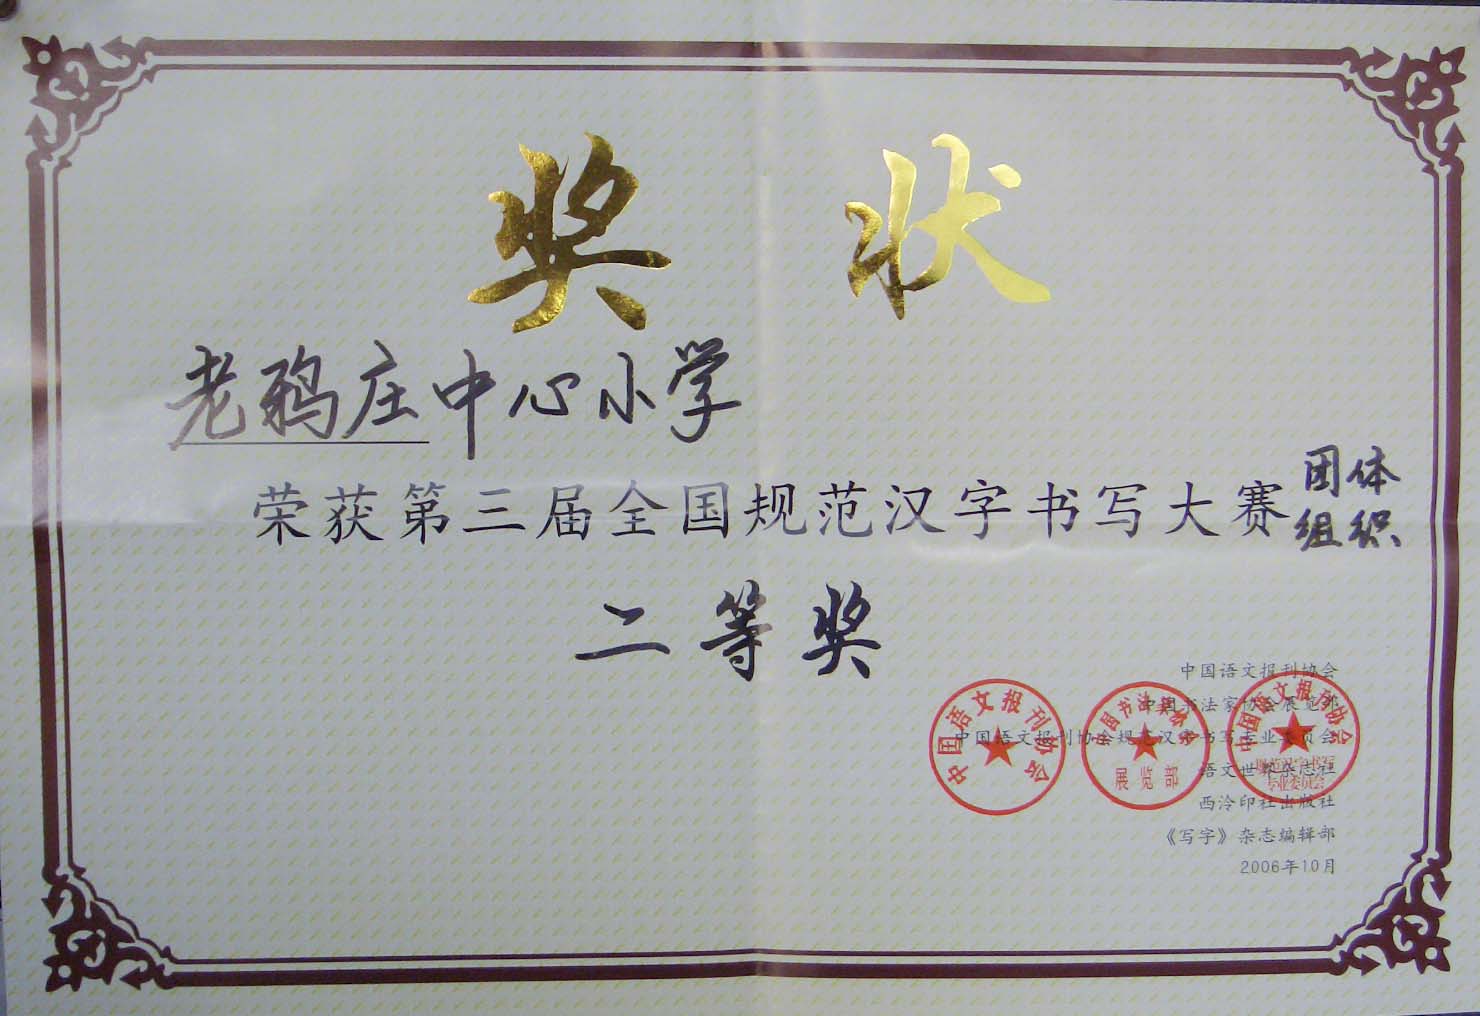 奖状
老鸦庄中心小学
荣获第三届全国规范汉字书写大赛团体组织
二等奖
中国语文报刊协会
中国书法家协会展览部
中国语文报刊协会规范汉字书写专业委员会
语文世界杂志社
西泠印社出版社
《写字》杂志编辑部
2006年10月
中国语文报刊协会
中国书法家协会
展览部
中国语文报刊协会
规范汉字书写
专业委员会